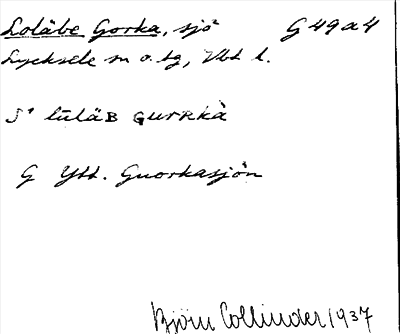 Lolåbe Gorka, sjö² G 49 a 4
Lycksele sn o. tg, Vbt l.
S¹ lūläʙ ɢuʀʀkà
G Ytt. Guorkasjön
Björn Collinder 1937